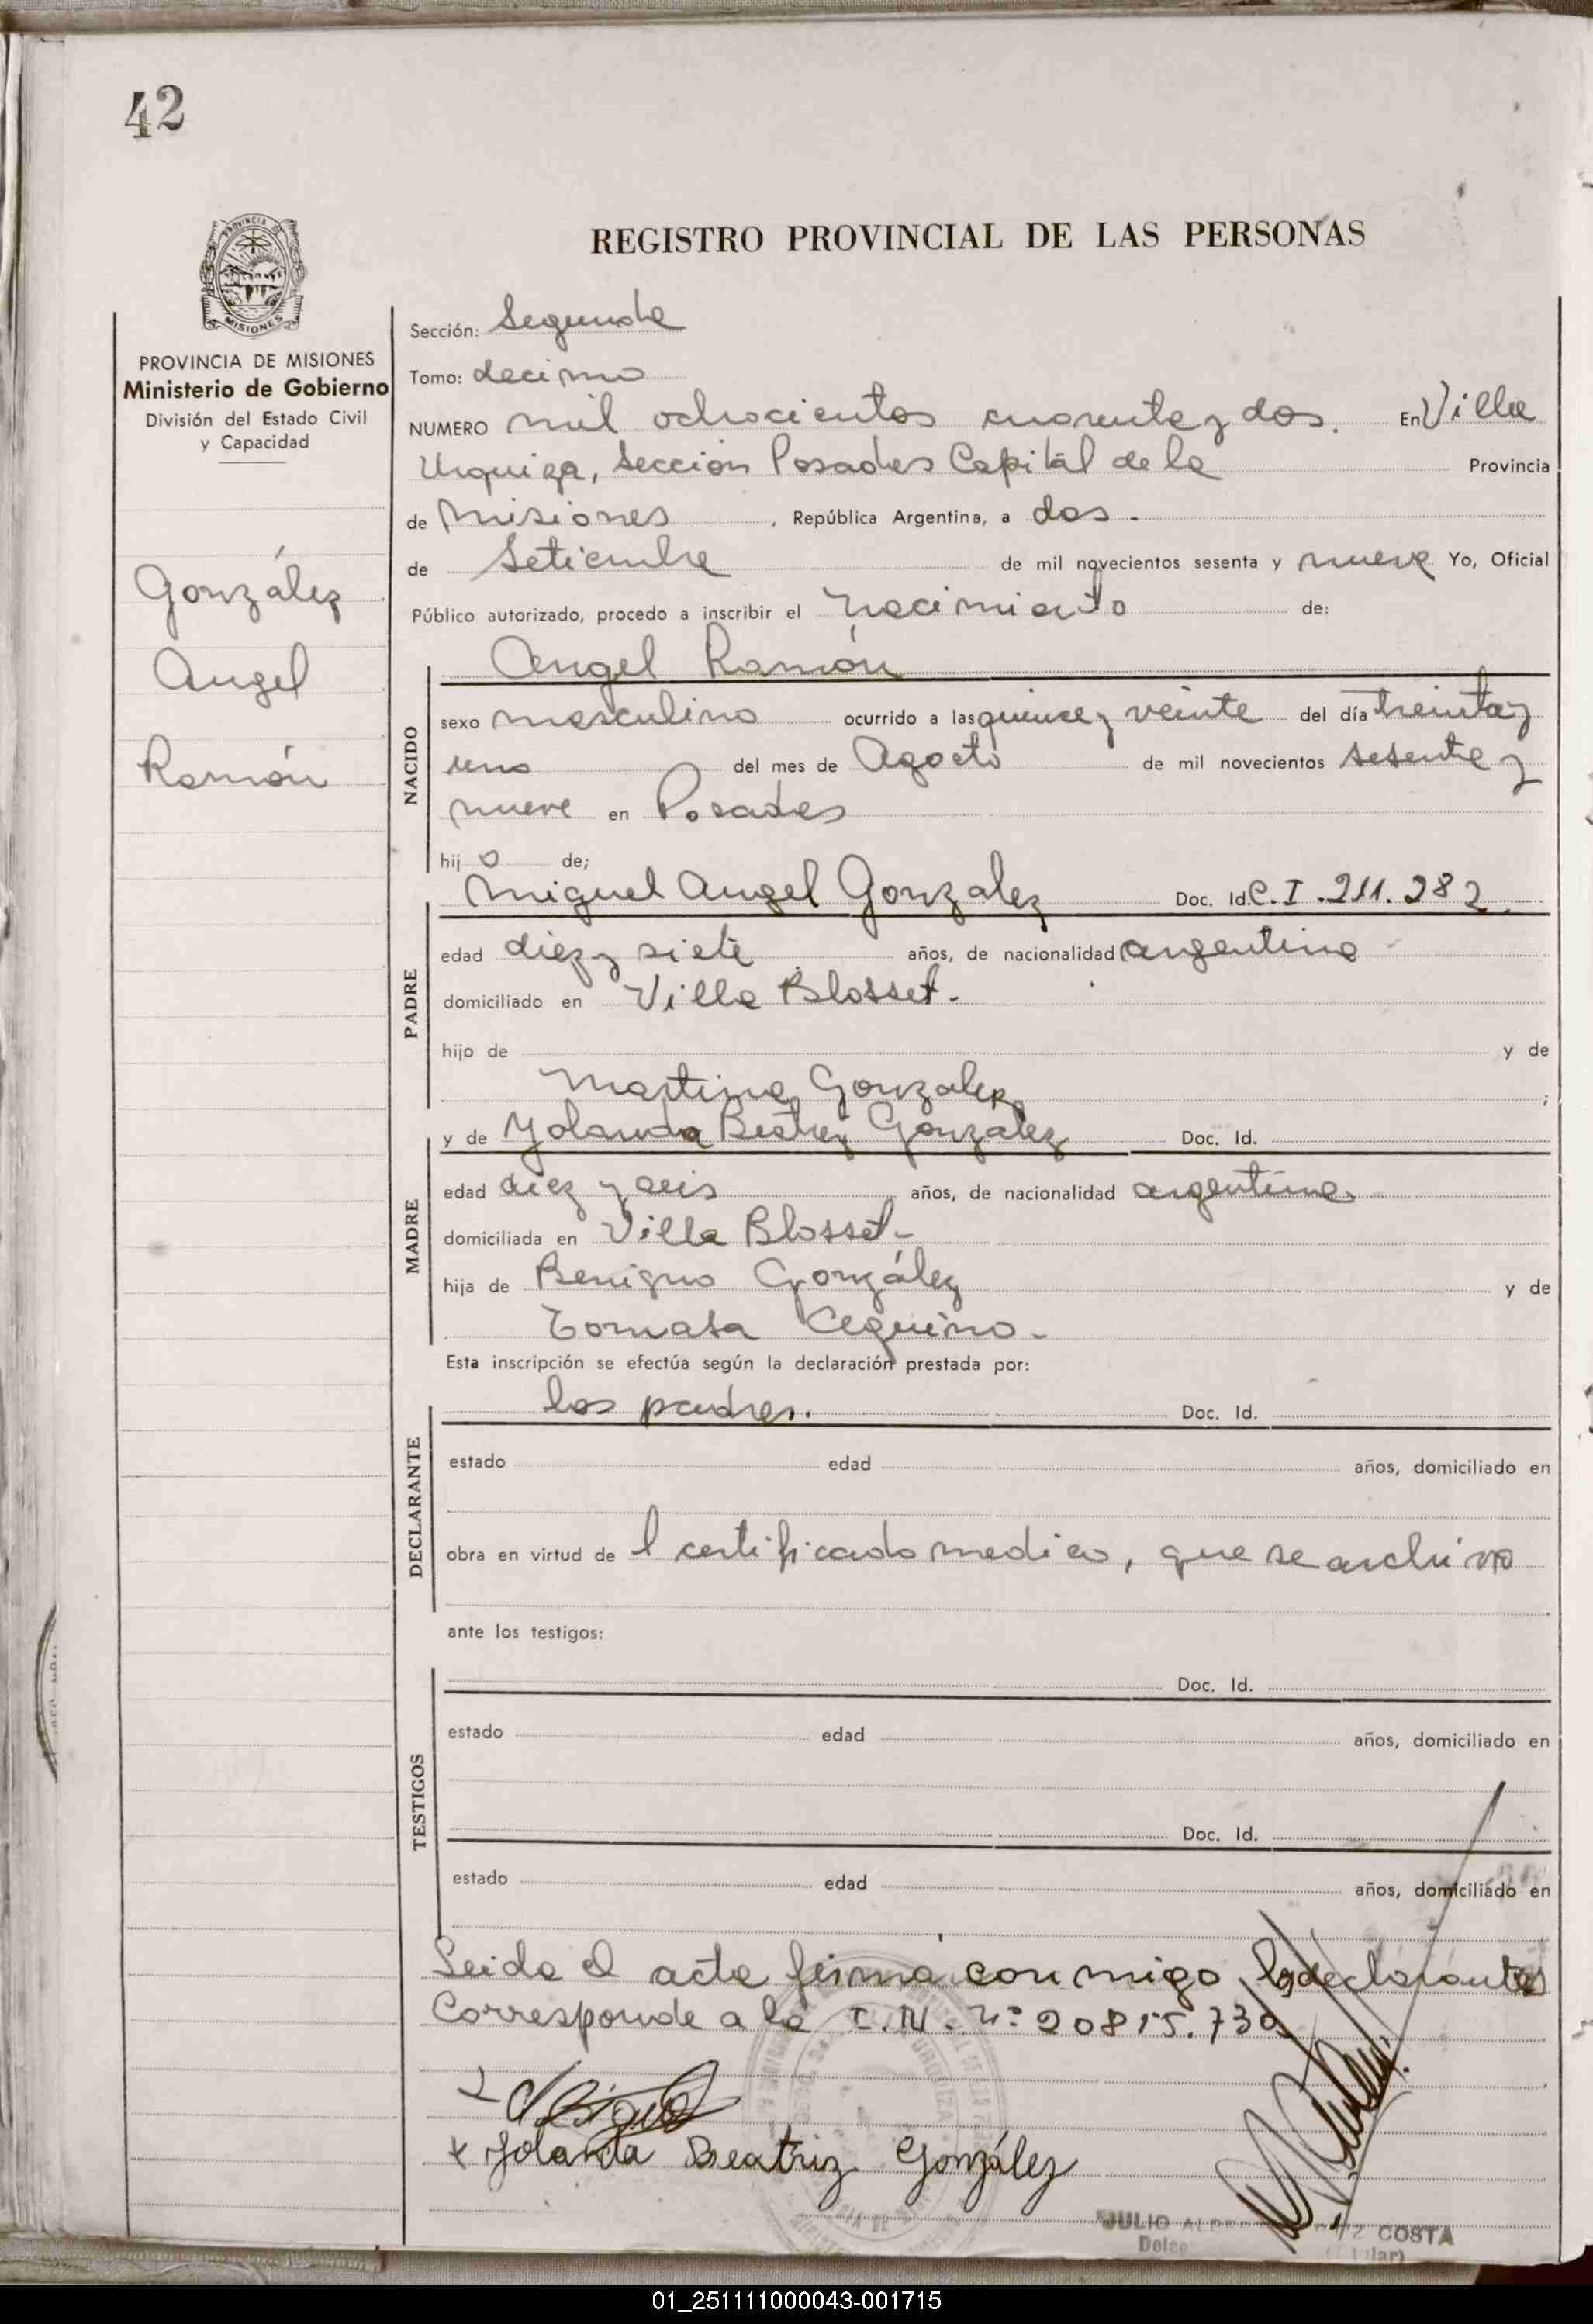 42
PROVINCIA DE
MISIONES
REGISTRO PROVINCIAL DE LAS PERSONAS
PROVINCIA DE MISIONES
Ministerio de Gobierno
División del Estado Civil
y Capacidad
González
Angel
Ramón
Sección: Segunda
Tomo: decimo
NUMERO mil ochocientos cuarenta y dos. En Villa
Urquiza, Sección Posadas Capital de la Provincia
de Misiones, República Argentina, a dos.-
de Setiembre de mil novecientos sesenta y nueve Yo, Oficial
Público autorizado, procedo a inscribir el nacimiento de:
Angel Ramón
NACIDO
sexo masculino ocurrido a las quince y veinte del día treinta y
uno del mes de Agosto de mil novecientos sesenta y
nueve en Posadas
hij o de;
Miguel Angel Gonzalez Doc. Id. C.I. 211.282.
PADRE
edad diez y siete años, de nacionalidad argentina -
domiciliado en Villa Blosset.-
hijo de y de
Martina Gonzalez ;
y de Yolanda Beatriz Gonzalez Doc. Id.
MADRE
edad diez y seis años, de nacionalidad argentina
domiciliada en Villa Blosset.-
hija de Benigno González y de
Tomasa Aquino.-
Esta inscripción se efectúa según la declaración prestada por:
los padres. Doc. Id.
DECLARANTE
estado edad años, domiciliado en
obra en virtud de l certificado medico, que se archivo
ante los testigos:
Doc. Id.
TESTIGOS
estado edad años, domiciliado en
Doc. Id.
estado edad años, domiciliado en
Leida el acta firma conmigo los declarantes
Corresponde a la I.N. Nº 20815.730
Yolanda Beatriz González
JULIO COSTA
01_251111000043-001715